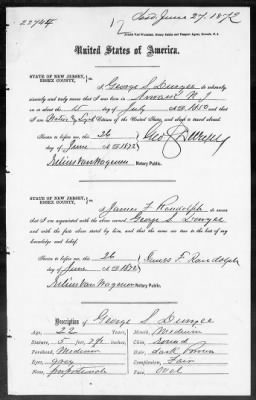 22744
12
Issd June 27. 1872
United States of America.
STATE OF NEW JERSEY,
ESSEX COUNTY.
I George S. Duryee do solemnly,
sincerely and truly swear that I was born in Newark N J
on or about the day of July A.D. 1850 that
I am Native Citizen of the United States, and about to travel abroad.
Sworn to before me this 26
day of June A.D. 1872
Geo. S. Duryee
Notary Public.
STATE OF NEW JERSEY,
ESSEX COUNTY.
I James F Randolph do
swear that I am acquainted with the above named George S. Duryee
and with the facts above stated by him, and that the same are true to the best of my
knowledge and belief.
Sworn to before me this 26
day of June A.D. 1872
James F. Randolph
Notary Public.
Description of George S. Duryee
Age, 22
Mouth, Medium
Stature, 5 feet
Chin, Round
Forehead, Medium
Hair, dark Brown
Eyes, grey
Complexion, Fair
Nose, proportionate
Face, Oval